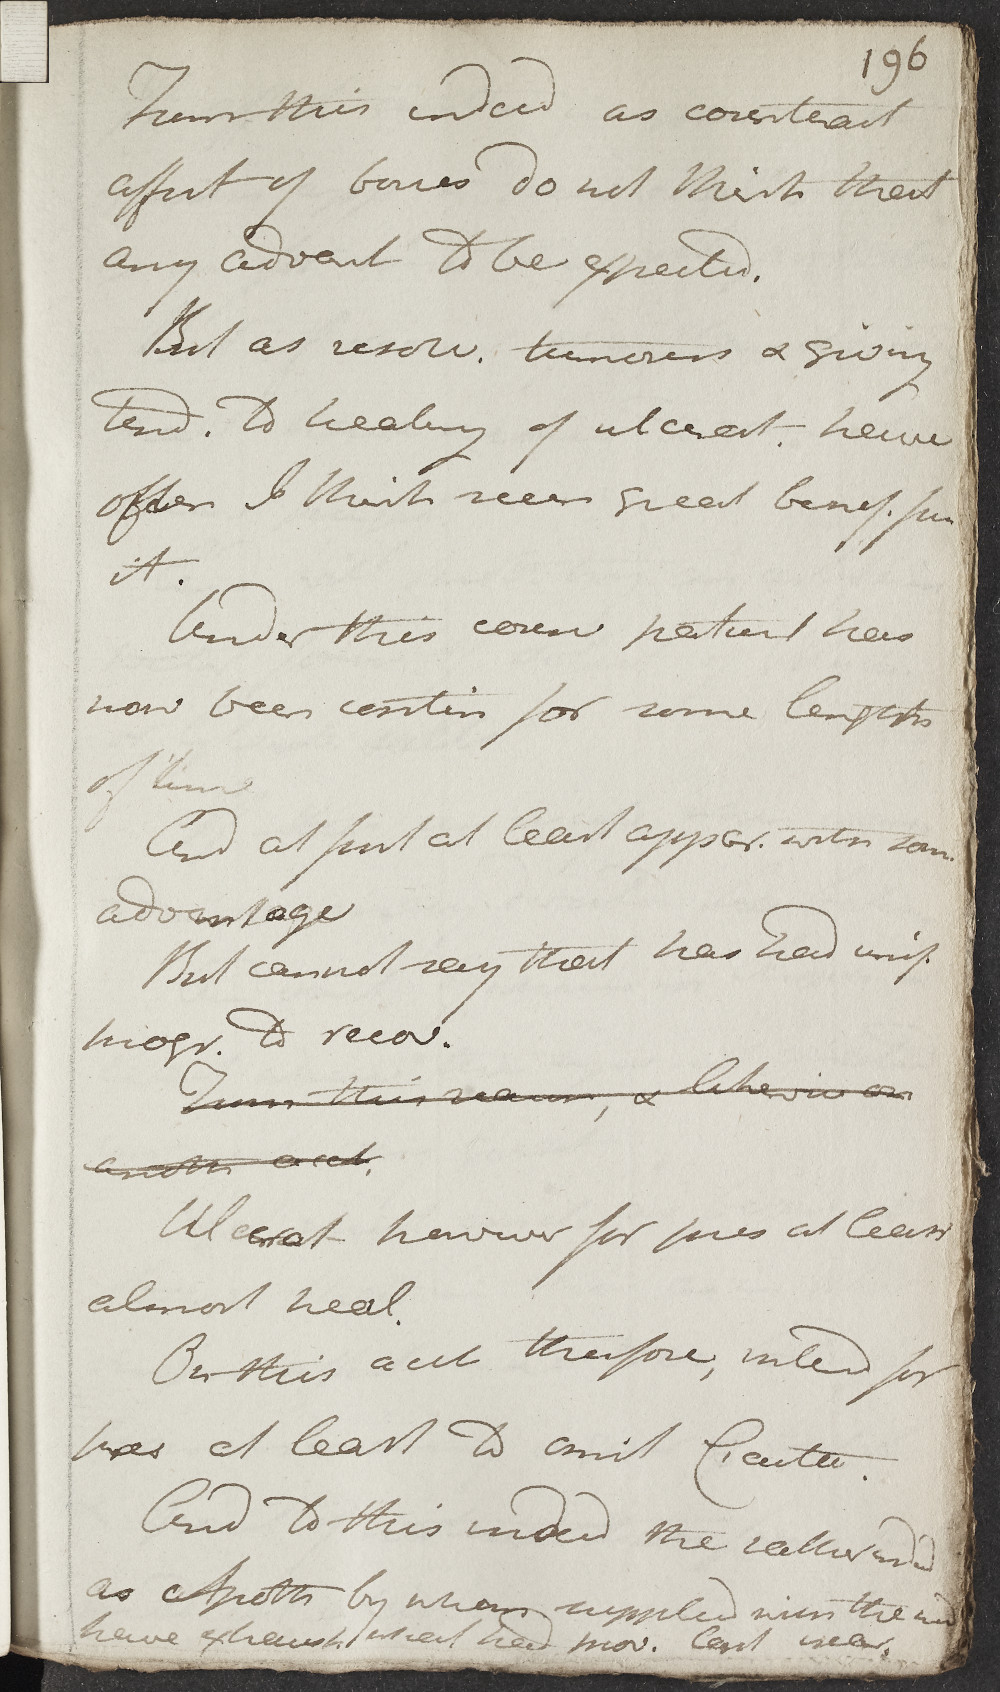 196
From this indeed as counteract
affect of bones do not think that
any advant to be expected.
But as resolv. tumours & giving
tend. to healing of ulcerat. have
often I think seen great benef. from
it.
Under this course patient has
now been contin for some length
of time
And at first at least appar. with som.
advantage
But cannot say that has had unif.
progr. to recov.
From this reason, & likewise on
anoth acct.
Ulcerat however for pres at least
almost heal.
On this acct therefore, intend for
pres at least to omit Cicuta.
And to this indeed the rather indu
as Apoth by whom supplied with the
have exhaust what had prov. last year.